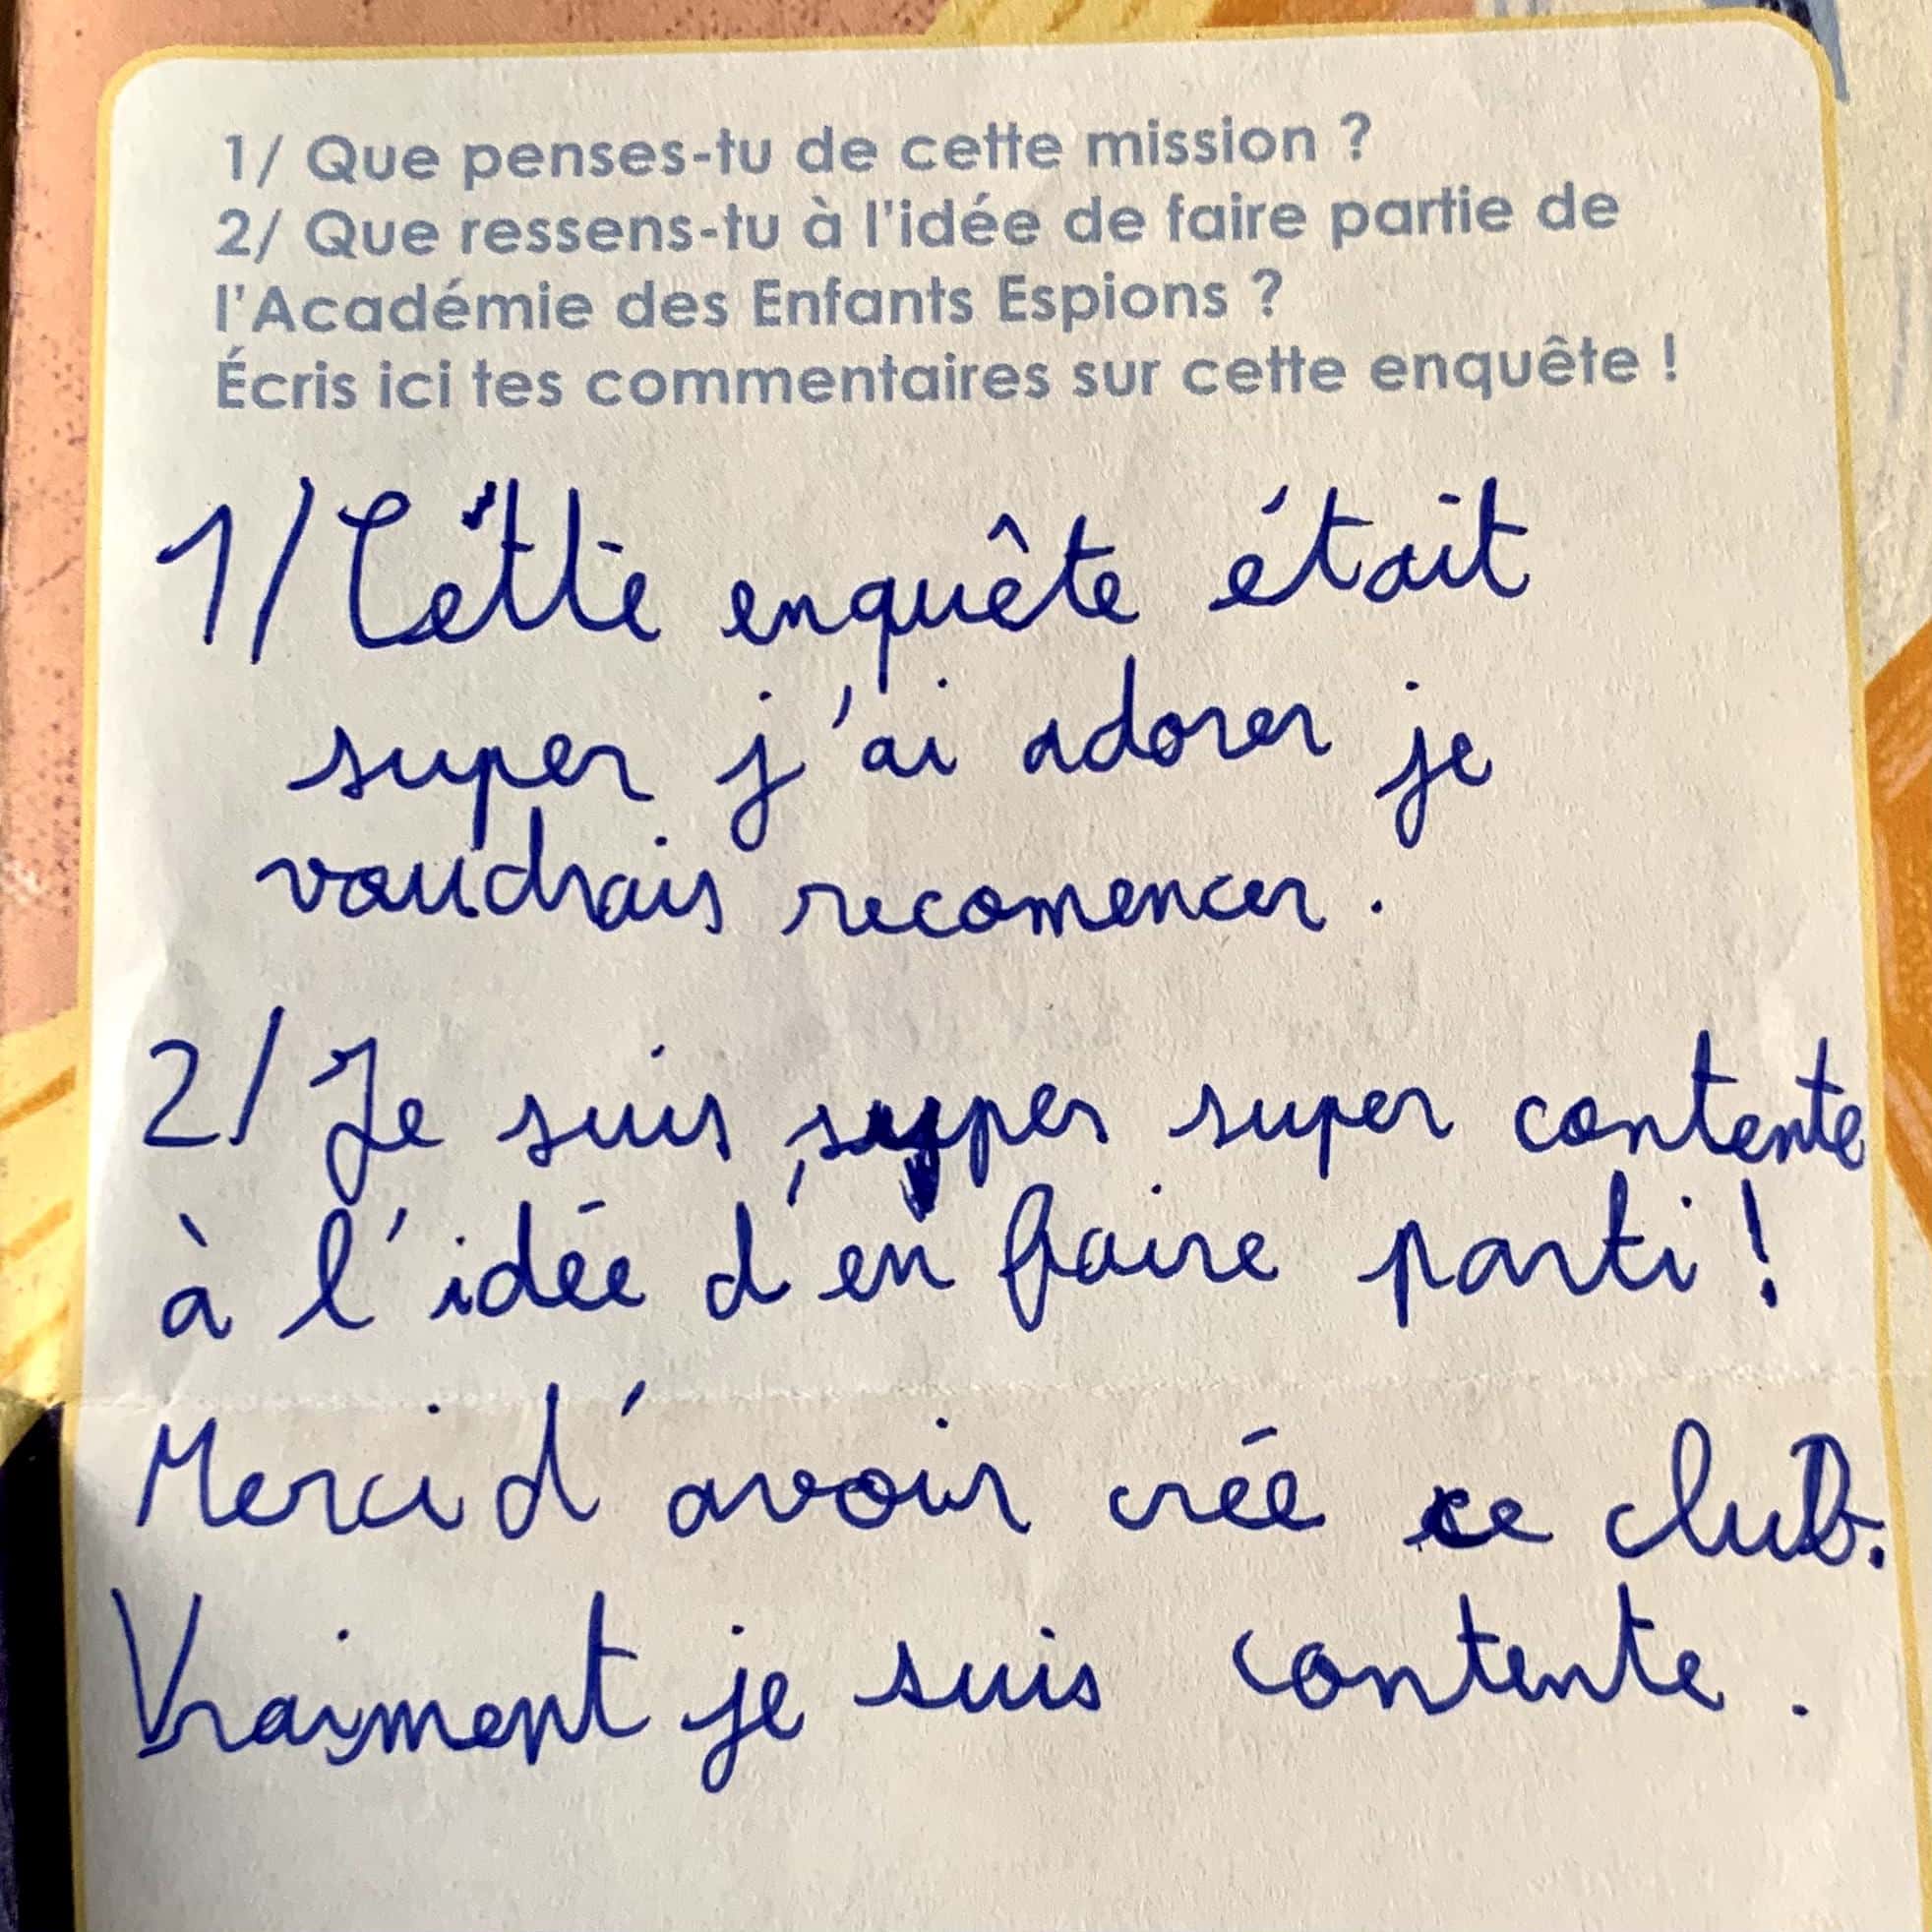 1/ Que penses-tu de cette mission ?
2/ Que ressens-tu à l'idée de faire partie de
l'Académie des Enfants Espions ?
Écris ici tes commentaires sur cette enquête !
1/ Cette enquête était
super j'ai adorer je
voudrais recomencer.
2/ Je suis super super contente
à l'idée d'en faire parti !
Merci d'avoir crée ce club.
Vraiment je suis contente.